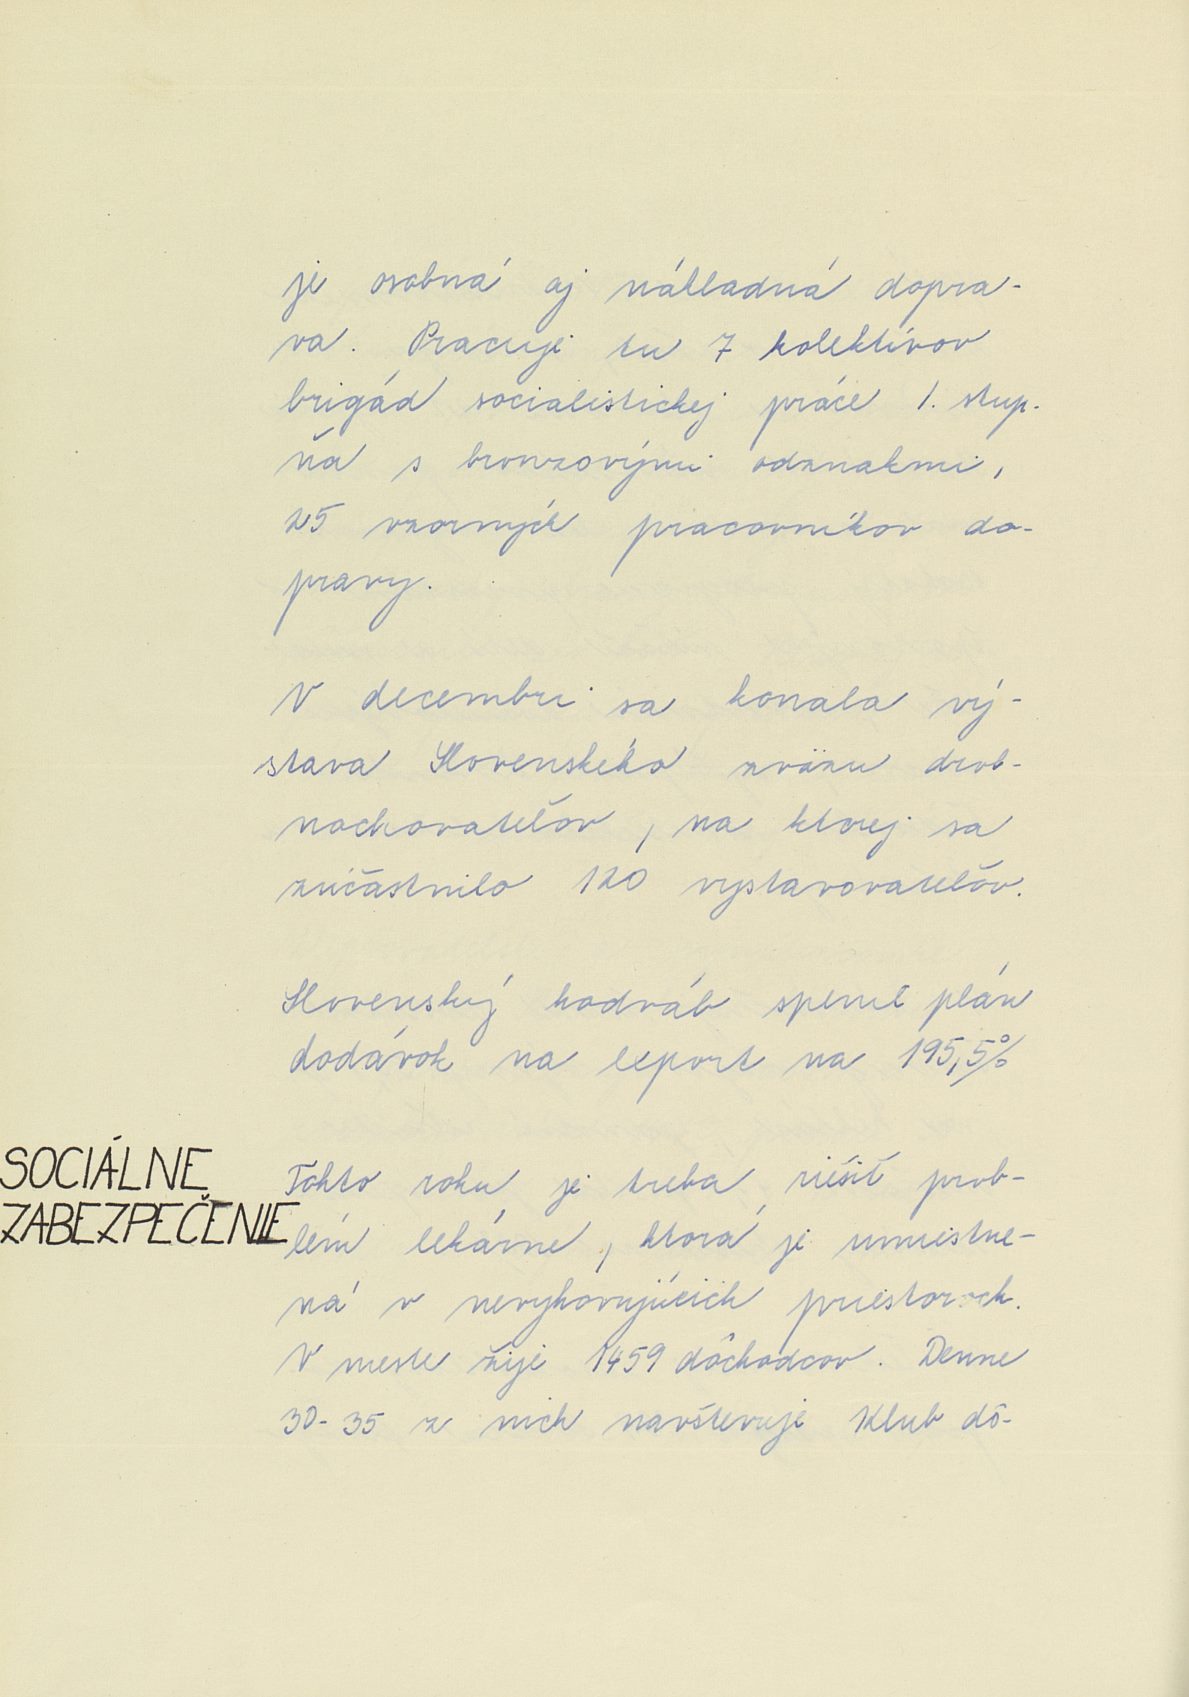 je osobná aj nákladná dopra-
va. Pracuje tu 7 kolektívov
brigád socialistickej práce 1. stup-
ňa s bronzovými odznakmi,
25 vzorných pracovníkov do-
pravy.
V decembri sa konala vý-
stava Slovenského zväzu drob-
nochovateľov, na ktorej sa
zúčastnilo 120 vystavovateľov.
Slovenský hodváb splnil plán
dodávok na export na 195,5%
SOCIÁLNE
ZABEZPEČENIE
Tohto roku je treba riešiť prob-
lém lekárne, ktorá je umiestne-
ná v nevyhovujúcich priestoroch.
V meste žije 1459 dôchodcov. Denne
30-35 z nich navštevuje Klub dô-